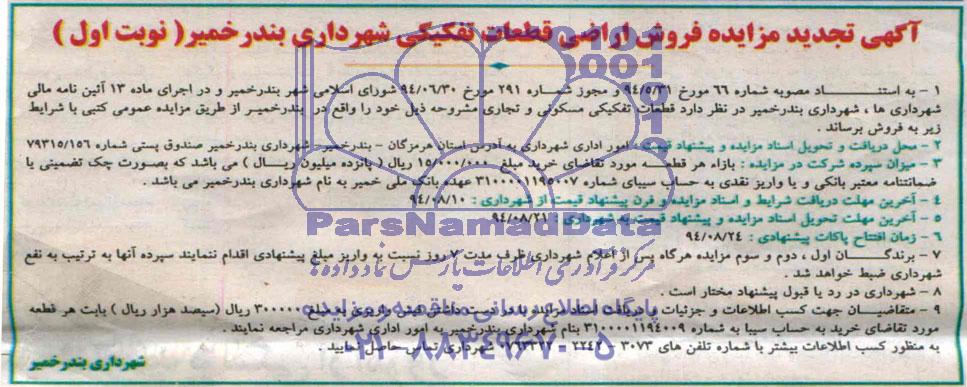 آگهی تجدید مزایده فروش اراضی قطعات تفکیکی شهرداری بندرخمیر( نوبت اول )
۱ - به استناد مصوبه شماره ۶۶ مورخ ۹۴/۵/۳۱ و مجوز شماره ۲۹۱ مورخ ۹۴/۰۶/۳۰ شورای اسلامی شهر بندرخمیر و در اجرای ماده ۱۳ آئین نامه مالی
شهرداری ها ، شهرداری بندرخمیر در نظر دارد قطعات تفکیکی مسکونی و تجاری مشروحه ذیل خود را واقع در بندرخمیر از طریق مزایده عمومی کتبی با شرایط
زیر به فروش برساند .
۲ - محل دریافت و تحویل اسناد مزایده و پیشنهاد قیمت : امور اداری شهرداری به آدرس استان هرمزگان - بندرخمیر - شهرداری بندرخمیر صندوق پستی شماره ۷۹۳۱۵/۱۵۶
۳ - میزان سپرده شرکت در مزایده : بازاء هر قطعه مورد تقاضای خرید مبلغ ۱۵/۰۰۰/۰۰۰ ریال ( پانزده میلیون ریال ) می باشد که بصورت چک تضمینی یا
ضمانتنامه معتبر بانکی و یا واریز نقدی به حساب سیبای شماره ۳۱۰۰۰۰۱۱۹۵۰۰۷ عهده بانک ملی خمیر به نام شهرداری بندرخمیر می باشد .
۴ - آخرین مهلت دریافت شرایط و اسناد مزایده و فرن پیشنهاد قیمت از شهرداری : ۹۴/۰۸/۱۰
۵ - آخرین مهلت تحویل اسناد مزایده و پیشنهاد قیمت به شهرداری : ۹۴/۰۸/۲۱
۶ - زمان افتتاح پاکات پیشنهادی : ۹۴/۰۸/۲۴
۷ - برندگان اول ، دوم و سوم مزایده هرگاه پس از اعلام شهرداری ظرف مدت ۷ روز نسبت به واریز مبلغ پیشنهادی اقدام ننمایند سپرده آنها به ترتیب به نفع
شهرداری ضبط خواهد شد .
۸ - شهرداری در رد یا قبول پیشنهاد مختار است .
۹ - متقاضیان جهت کسب اطلاعات و جزئیات و دریافت اسناد مزایده با در دست داشتن فیش واریزی به مبلغ ۳۰۰۰۰۰ ریال (سیصد هزار ریال ) بابت هر قطعه
مورد تقاضای خرید به حساب سیبا به شماره ۳۱۰۰۰۰۱۱۹۴۰۰۹ بنام شهرداری بندرخمیر به امور اداری شهرداری مراجعه نمایند .
به منظور کسب اطلاعات بیشتر با شماره تلفن های ۳۰۷۳ - ۲۲۴۲ شهرداری تماس حاصل نمایید .
شهرداری بندرخمیر
ParsNamadData
مرکز فرآوری اطلاعات پارس نماد داده ها
پایگاه اطلاع رسانی مناقصه و مزایده
۰۲۱-۸۸۳۴۹۶۷۰-۵